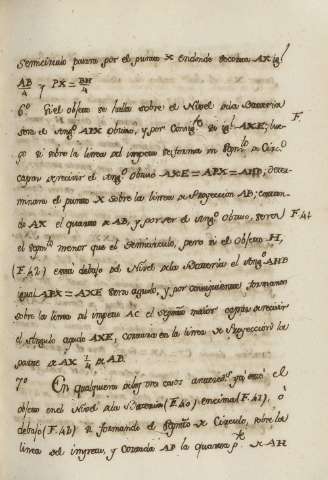 Semicirculo pasara por el punto X endonde se cortara AX ig.l
AB/4 y PX = BH/4
6.o Si el objeto se halla sobre el Nivel de la Bateria
sera el Ang.o APX Obtuso, y por Consig.te su ig.l AXE; lue- F.
go si sobre la linea del impetu se forma un Segm.to de Circ.o
capaz de recivir el Ang.o obtuso AXE = APX = AHD, Deter-
minara el punto X sobre la linea de Proyeccion AB; cortan-
do AX el quarto de AB, y por ser el Ang.o Obtuso, sera F. 41
el Segm.to menor que el Semicirculo, pero si el Objeto H,
(F. 42) esta debajo del Nivel de la Bateria el Ang.o AHB
igual APX = AXE sera agudo, y por consiguiente formando
sobre la linea del impetu AC el Segm.to maior capaz de recivir
el Angulo agudo AXE, cortara en la linea de Proyeccion la
parte de AX 1/4 de AB.
7.o En qualquiera de los tres casos anteced.s ya esté el
objeto en el Nivel de la Bateria (F. 40) encima (F. 41), ó
debajo (F. 42) si formando el Segm.to de Circulo, sobre la
linea del impetu, y cortada AP la quarta p.te de AH